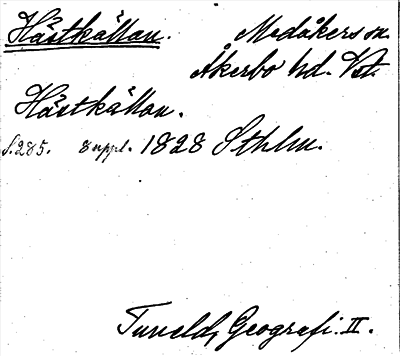 Hästkällan. Medåkers sn
Åkerbo hd. Vst.
Hästkällan.
S. 285. 8 uppl. 1828 Sthlm.
Tuneld, Geografi. II.